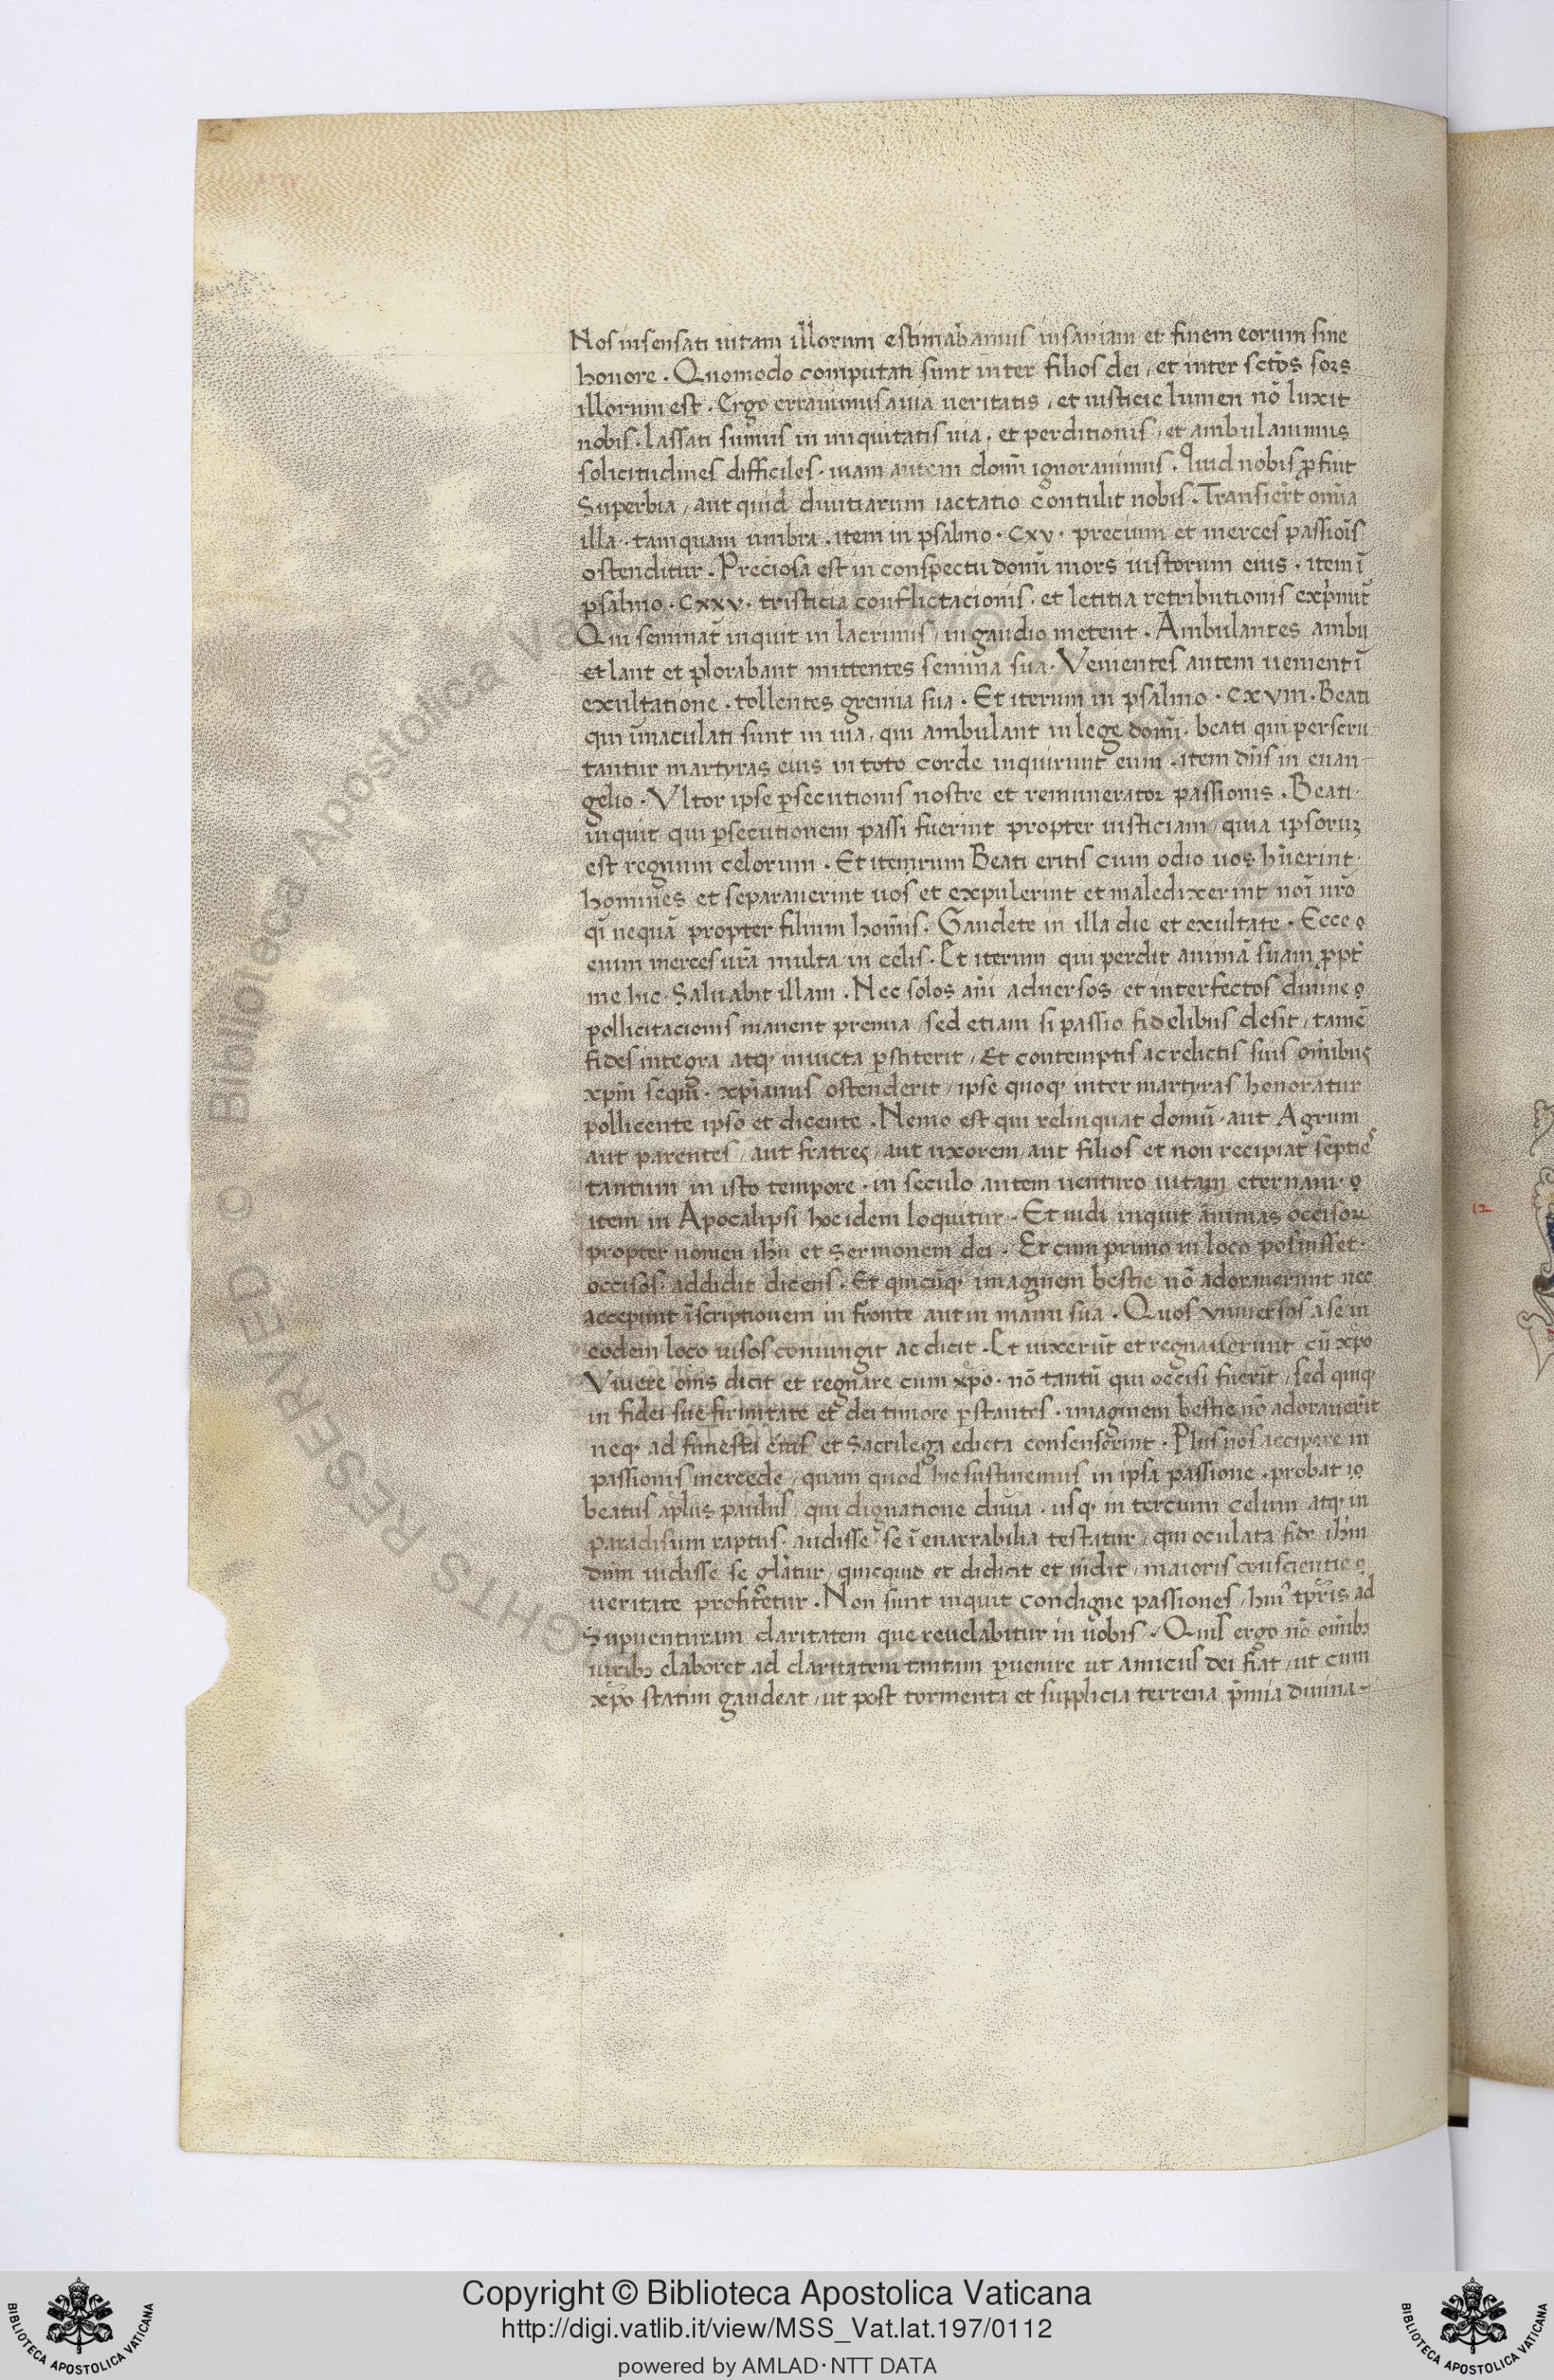 Nos insensati uitam illorum estimabamus insaniam et finem eorum sine
honore . Quomodo computati sunt inter filios dei / et inter sctōs sors
illorum est . Ergo errauimus a uia ueritatis / et iusticie lumen nō luxit
nobis . lassati sumus in iniquitatis uia . et perditionis / et ambulauimus
solicitudines difficiles . uiam autem domī ignorauimus . Quid nobis ꝓfuit
Superbia / aut quid diuitiarum iactatio contulit nobis . Transier̄t om̄ia
illa . tamquam umbra . item in psalmo . cxv . precium et merces passiōis
ostenditur . Preciosa est in conspectu domī mors iustorum eius . item ī
psalmo . cxxv . tristicia conflictacionis . et letitia retributionis exp̄mit̄
Qui seminat̄ inquit in lacrimis / in gaudio metent . Ambulantes ambu
et lant et plorabant mittentes semina sua . Venientes autem uenient ī
exultatione . tollentes gremia sua . Et iterum in psalmo . cxviii . Beati
qui īmaculati sunt in uia . qui ambulant in lege domī . beati qui perscru
tantur martyras eius in toto corde inquirunt eum . item dn̄s in euan
gelio . Vltor ipse ꝑsecutionis nostre et remunerator passionis . Beati
inquit qui ꝑsecutionem passi fuerint propter iusticiam / quia ipsoruꝫ
est regnum celorum . Et itemrum Beati eritis cum odio uos hūerint
homines et separauerint uos et expulerint et maledixerint noī ur̄o
qī nequā propter filium homīs . Gaudete in illa die et exultate . Ecce
enim merces ur̄a multa in celis . Et iterum qui perdit animā suam ꝓpt̄
me hic . Saluabit illam . Nec solos aiū aduersos et interfectos diuine
pollicitacionis manent premia / sed etiam si passio fidelibus desit / tamē
fides integra atqꝫ inuicta ꝑstiterit / Et contemptis ac relictis suis om̄ibus
xpm̄ sequi . xp̄ianus ostenderit / ipse quoqꝫ inter martyras honoratur
pollicente ipso et dicente . Nemo est qui relinquat domū . aut Agrum
aut parentes / aut fratres / aut uxorem / aut filios et non recipiat septie
tantum in isto tempore . in seculo autem uenturo uitam eternam .
item in Apocalipsi hoc idem loquitur . Et uidi inquit animas occisoꝝ
propter nomen ihū et Sermonem dei . Et cum primo in loco posuisset .
occisos addidit dicens . Et quicūqꝫ imaginem bestie nō adorauerunt nec
acceperunt īscriptionem in fronte aut in manu sua . Quos vniuersos a se in
eodem loco uisos coniungit ac dicit . Et uixerūt et regnauerunt cū xpō
Viuere om̄s dicit et regnare cum xpō . nō tantū qui occisi fuerīt / sed quiqꝫ
in fidei sue firmitate et dei timore ꝑstantes . imaginem bestie nō adorauerīt
neqꝫ ad funesta eius et Sacrilega edicta consenserint . Plus nos accipere in
passionis mercede / quam quod hic sustinemus in ipsa passione . probat
beatus apl̄us paulus / qui dignatione diuīa . usqꝫ in tercium celum atqꝫ in
paradisum raptus . audisse se ī enarrabilia testatur / qui oculata fide ihm̄
dūm uidisse se gl̄atur / quicquid et didicit et uidit / maioris conscientie
ueritate profitetur . Non sunt inquit condigne passiones / hui᷒ tp̄ris ad
Supuenturam claritatem que reuelabitur in uobis . Quis ergo nō om̄ibꝫ
uiribꝫ elaboret ad claritatem tantam ꝑuenire ut amicus dei fiat / ut cum
xpō statim gaudeat / ut post tormenta et supplicia terrena p̄mia diuina
12
© Biblioteca Apostolica Vaticana
RIGHTS RESERVED
Copyright © Biblioteca Apostolica Vaticana
http://digi.vatlib.it/view/MSS_Vat.lat.197/0112
powered by AMLAD·NTT DATA
BIBLIOTECA APOSTOLICA VATICANA
BIBLIOTECA APOSTOLICA VATICANA